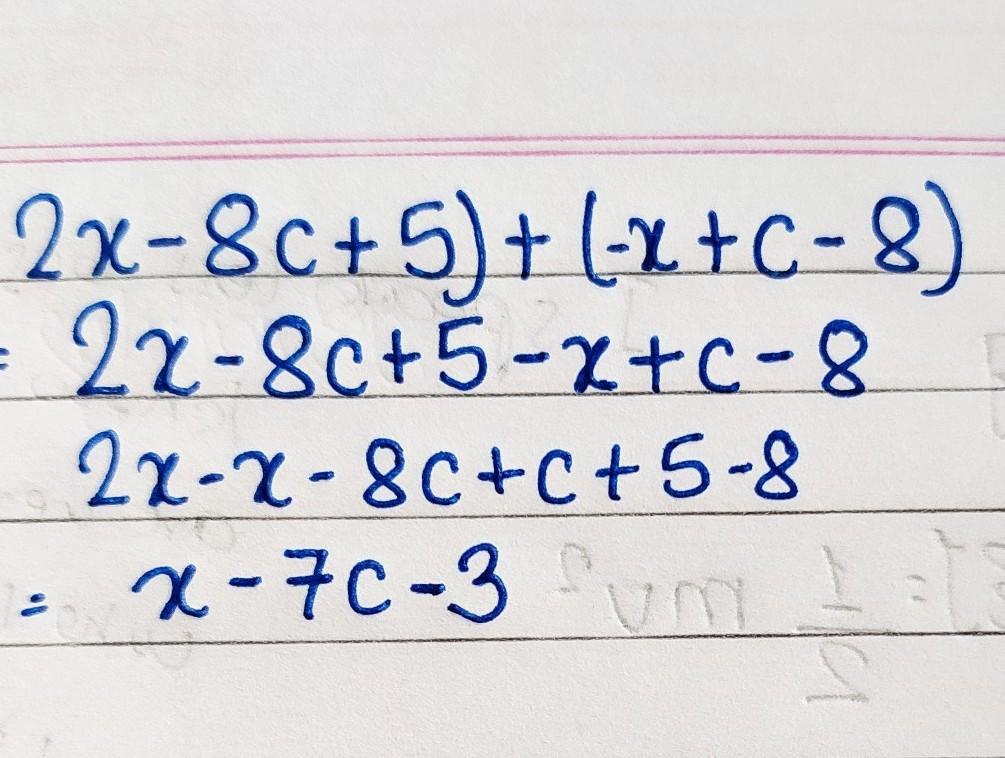 2x-8c+5)+(-x+c-8)
= 2x-8c+5-x+c-8
2x-x-8c+c+5-8
= x-7c-3